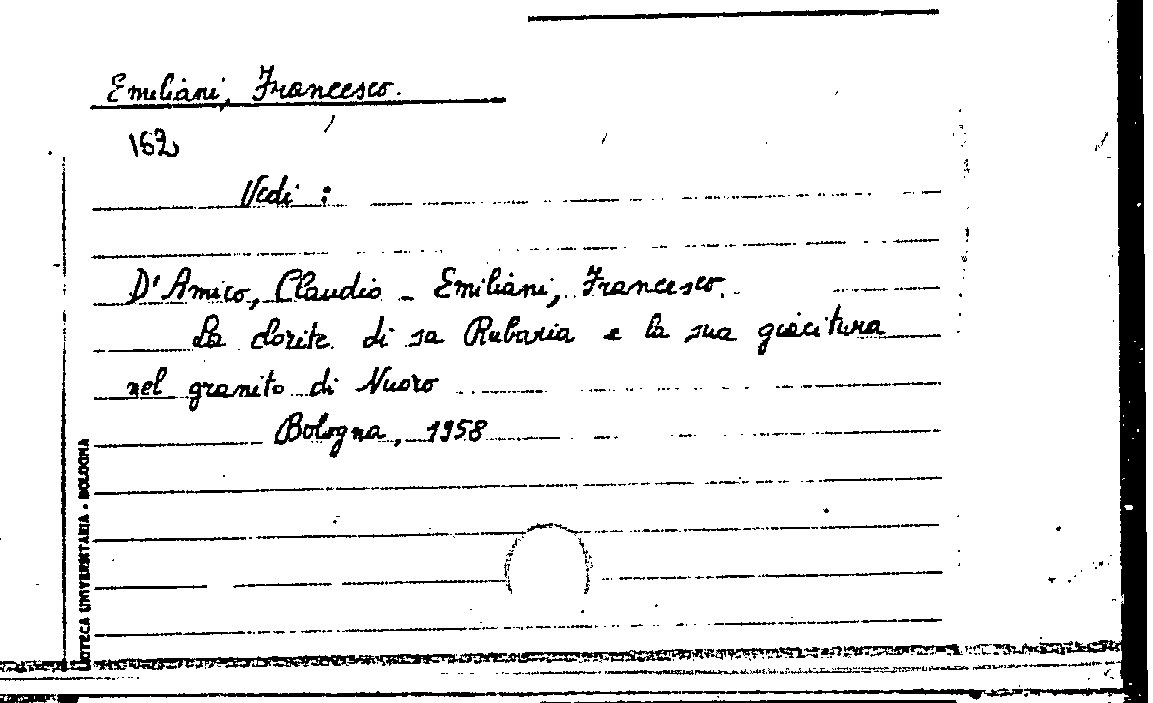 Emiliani, Francesco.
162
Vedi :
D'Amico, Claudio - Emiliani, Francesco.
La clorite di sa Rubaria e la sua giacitura
nel granito di Nuoro
Bologna, 1958
UNIVERSITARIA • BOLOGNA